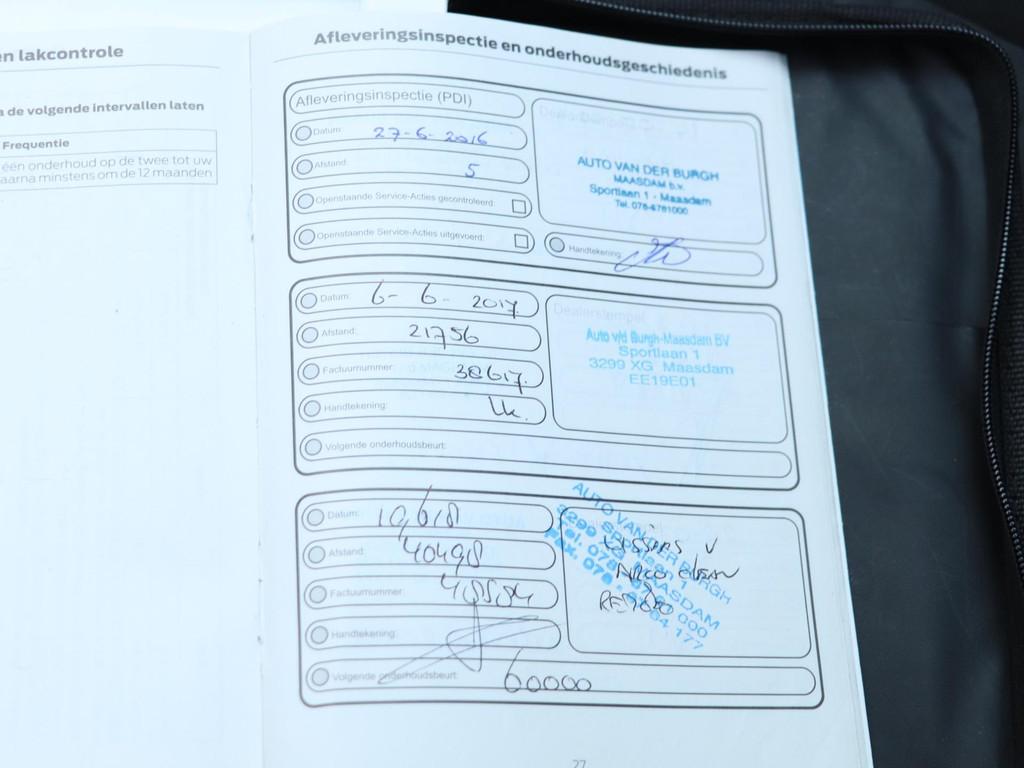 en lakcontrole
a de volgende intervallen laten
Frequentie
één onderhoud op de twee tot uw
aarna minstens om de 12 maanden
Afleveringsinspectie en onderhoudsgeschiedenis
Afleveringsinspectie (PDI)
Datum: 27-6-2016
Afstand: 5
Openstaande Service-Acties gecontroleerd:
Openstaande Service-Acties uitgevoerd:
AUTO VAN DER BURGH
MAASDAM b.v.
Sportlaan 1 - Maasdam
Tel. 078-6761000
Handtekening:
Datum: 6-6-2017
Afstand: 21756
Factuurnummer: 38617
Handtekening:
Volgende onderhoudsbeurt:
Dealerstempel
Auto v/d Burgh-Maasdam BV
Sportlaan 1
3299 XG Maasdam
EE19E01
Datum:
Afstand: 40498
Factuurnummer:
Handtekening:
Volgende onderhoudsbeurt: 60000
AUTO VAN DER BURGH
Sportlaan 1
3299 MAASDAM
Tel. 078
Fax. 078
27